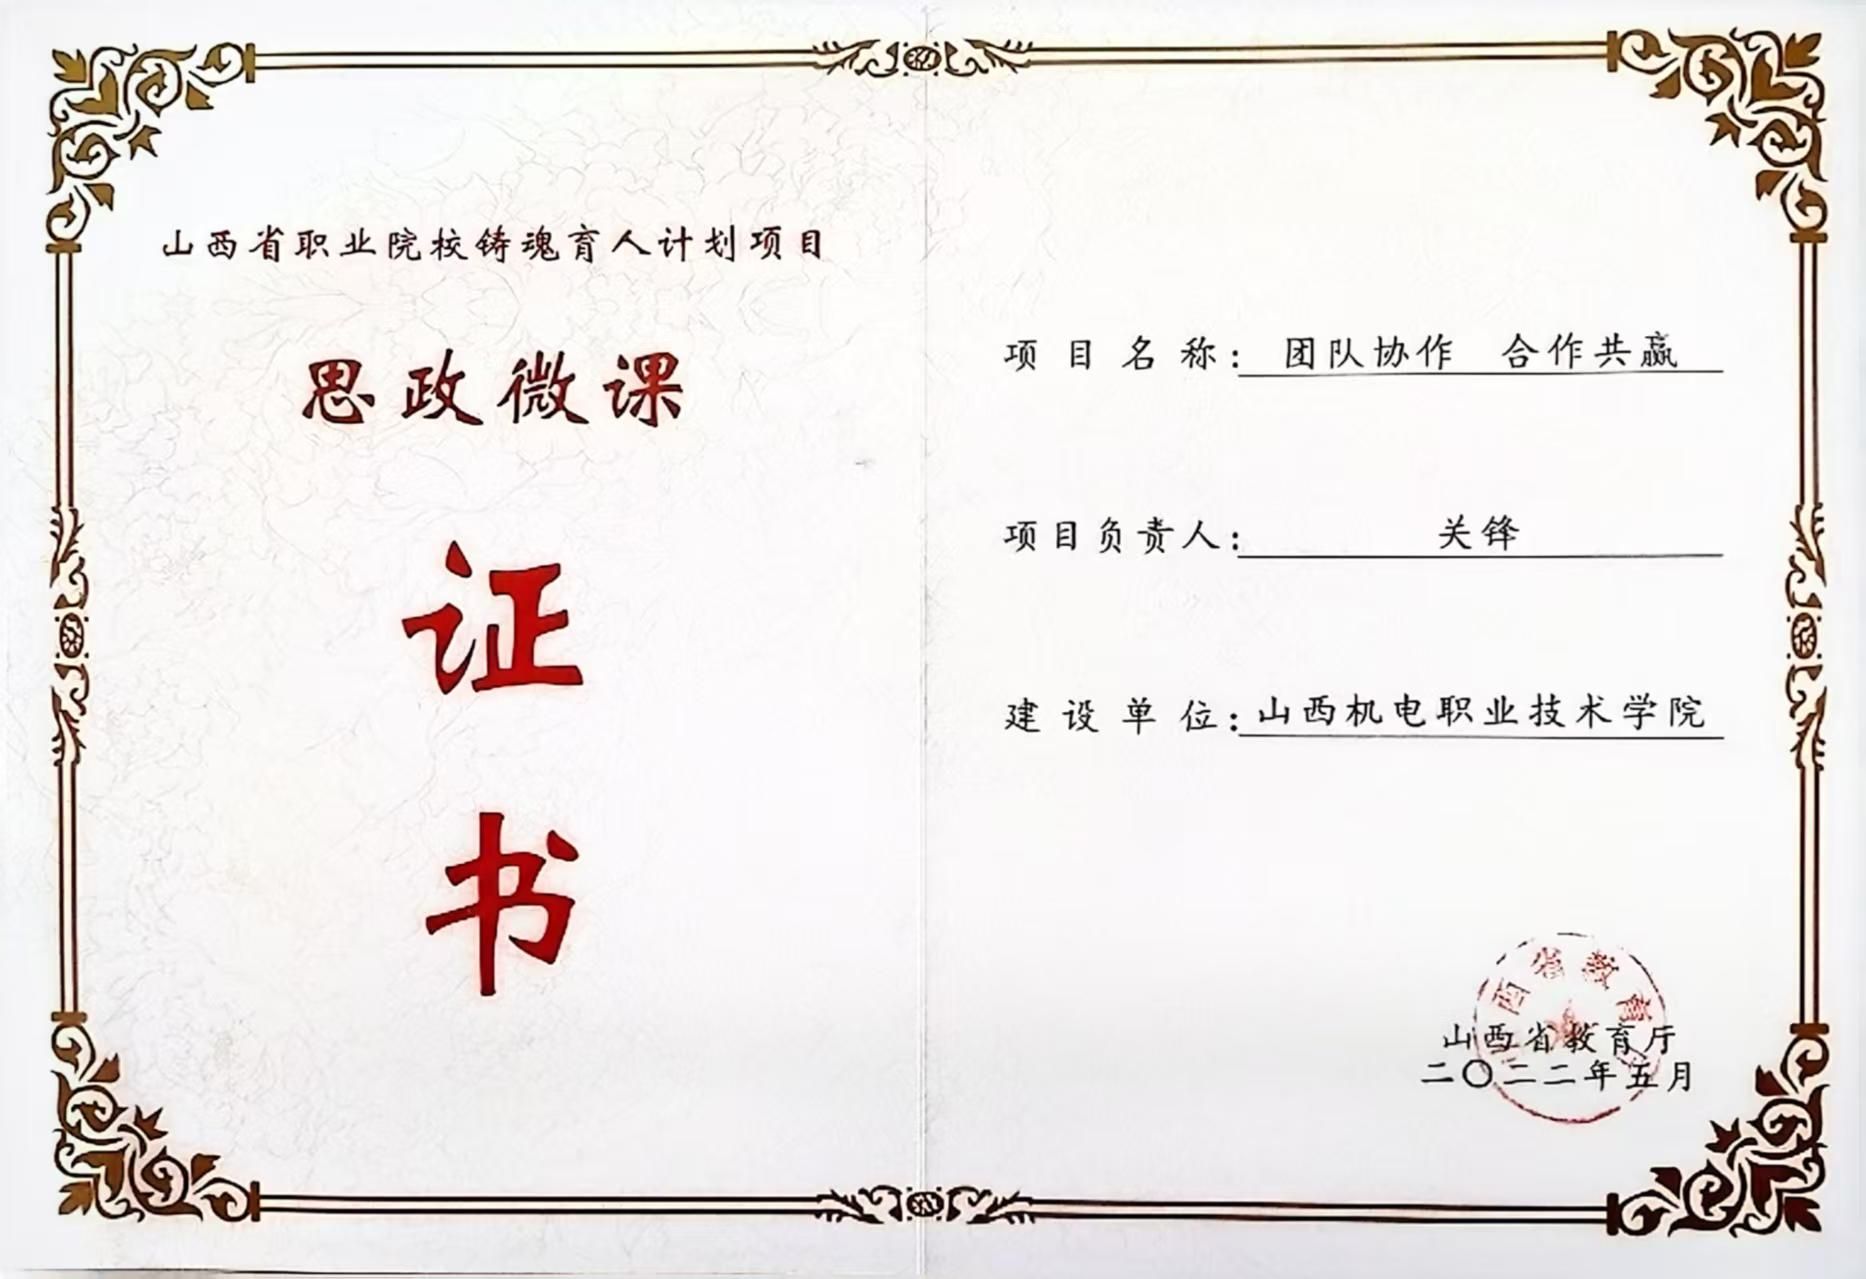 山西省职业院校铸魂育人计划项目
思政微课
证
书
项目名称：团队协作 合作共赢
项目负责人：关锋
建设单位：山西机电职业技术学院
西省教育
山西省教育厅
二〇二二年五月